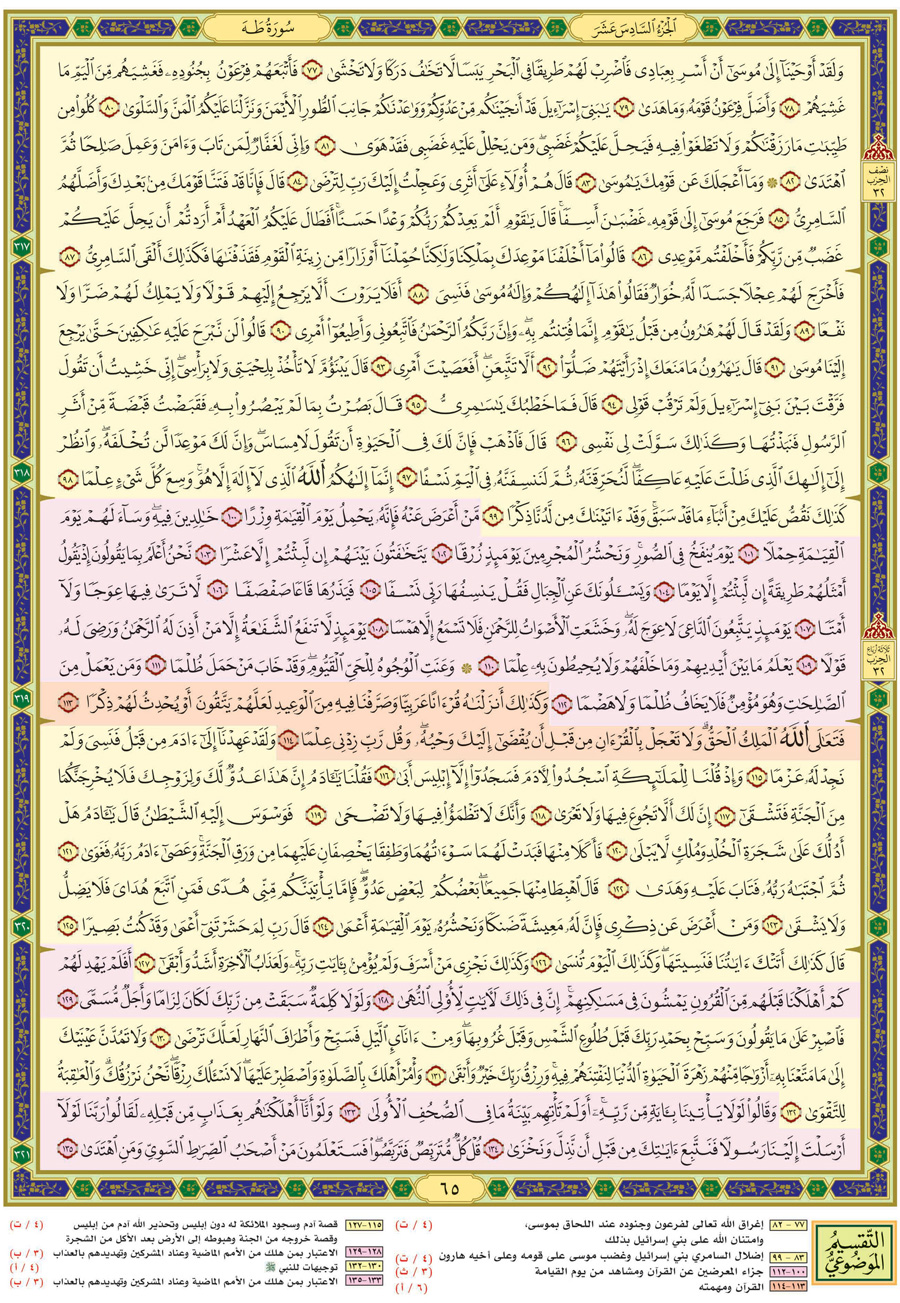 الجُزْءُ السَّادِسَ عَشَرَ
سُورَةُ طه
وَلَقَدْ أَوْحَيْنَآ إِلَىٰ مُوسَىٰٓ أَنْ أَسْرِ بِعِبَادِى فَٱضْرِبْ لَهُمْ طَرِيقًا فِى ٱلْبَحْرِ يَبَسًا لَّا تَخَٰفُ دَرَكًا وَلَا تَخْشَىٰ ٧٧ فَأَتْبَعَهُمْ فِرْعَوْنُ بِجُنُودِهِۦ فَغَشِيَهُم مِّنَ ٱلْيَمِّ مَا
غَشِيَهُمْ ٧٨ وَأَضَلَّ فِرْعَوْنُ قَوْمَهُۥ وَمَا هَدَىٰ ٧٩ يَٰبَنِىٓ إِسْرَٰٓءِيلَ قَدْ أَنجَيْنَٰكُم مِّنْ عَدُوِّكُمْ وَوَٰعَدْنَٰكُمْ جَانِبَ ٱلطُّورِ ٱلْأَيْمَنَ وَنَزَّلْنَا عَلَيْكُمُ ٱلْمَنَّ وَٱلسَّلْوَىٰ ٨٠ كُلُوا۟ مِن
طَيِّبَٰتِ مَا رَزَقْنَٰكُمْ وَلَا تَطْغَوْا۟ فِيهِ فَيَحِلَّ عَلَيْكُمْ غَضَبِى ۖ وَمَن يَحْلِلْ عَلَيْهِ غَضَبِى فَقَدْ هَوَىٰ ٨١ وَإِنِّى لَغَفَّارٌ لِّمَن تَابَ وَءَامَنَ وَعَمِلَ صَٰلِحًا ثُمَّ
ٱهْتَدَىٰ ٨٢ ۞ وَمَآ أَعْجَلَكَ عَن قَوْمِكَ يَٰمُوسَىٰ ٨٣ قَالَ هُمْ أُو۟لَآءِ عَلَىٰٓ أَثَرِى وَعَجِلْتُ إِلَيْكَ رَبِّ لِتَرْضَىٰ ٨٤ قَالَ فَإِنَّا قَدْ فَتَنَّا قَوْمَكَ مِنۢ بَعْدِكَ وَأَضَلَّهُمُ
ٱلسَّامِرِىُّ ٨٥ فَرَجَعَ مُوسَىٰٓ إِلَىٰ قَوْمِهِۦ غَضْبَٰنَ أَسِفًا ۚ قَالَ يَٰقَوْمِ أَلَمْ يَعِدْكُمْ رَبُّكُمْ وَعْدًا حَسَنًا ۚ أَفَطَالَ عَلَيْكُمُ ٱلْعَهْدُ أَمْ أَرَدتُّمْ أَن يَحِلَّ عَلَيْكُمْ
غَضَبٌ مِّن رَّبِّكُمْ فَأَخْلَفْتُم مَّوْعِدِى ٨٦ قَالُوا۟ مَآ أَخْلَفْنَا مَوْعِدَكَ بِمَلْكِنَا وَلَٰكِنَّا حُمِّلْنَآ أَوْزَارًا مِّن زِينَةِ ٱلْقَوْمِ فَقَذَفْنَٰهَا فَكَذَٰلِكَ أَلْقَى ٱلسَّامِرِىُّ ٨٧
فَأَخْرَجَ لَهُمْ عِجْلًا جَسَدًا لَّهُۥ خُوَارٌ فَقَالُوا۟ هَٰذَآ إِلَٰهُكُمْ وَإِلَٰهُ مُوسَىٰ فَنَسِىَ ٨٨ أَفَلَا يَرَوْنَ أَلَّا يَرْجِعُ إِلَيْهِمْ قَوْلًا وَلَا يَمْلِكُ لَهُمْ ضَرًّا وَلَا
نَفْعًا ٨٩ وَلَقَدْ قَالَ لَهُمْ هَٰرُونُ مِن قَبْلُ يَٰقَوْمِ إِنَّمَا فُتِنتُم بِهِۦ ۖ وَإِنَّ رَبَّكُمُ ٱلرَّحْمَٰنُ فَٱتَّبِعُونِى وَأَطِيعُوٓا۟ أَمْرِى ٩٠ قَالُوا۟ لَن نَّبْرَحَ عَلَيْهِ عَٰكِفِينَ حَتَّىٰ يَرْجِعَ
إِلَيْنَا مُوسَىٰ ٩١ قَالَ يَٰهَٰرُونُ مَا مَنَعَكَ إِذْ رَأَيْتَهُمْ ضَلُّوٓا۟ ٩٢ أَلَّا تَتَّبِعَنِ ۖ أَفَعَصَيْتَ أَمْرِى ٩٣ قَالَ يَبْنَؤُمَّ لَا تَأْخُذْ بِلِحْيَتِى وَلَا بِرَأْسِىٓ ۖ إِنِّى خَشِيتُ أَن تَقُولَ
فَرَّقْتَ بَيْنَ بَنِىٓ إِسْرَٰٓءِيلَ وَلَمْ تَرْقُبْ قَوْلِى ٩٤ قَالَ فَمَا خَطْبُكَ يَٰسَٰمِرِىُّ ٩٥ قَالَ بَصُرْتُ بِمَا لَمْ يَبْصُرُوا۟ بِهِۦ فَقَبَضْتُ قَبْضَةً مِّنْ أَثَرِ
ٱلرَّسُولِ فَنَبَذْتُهَا وَكَذَٰلِكَ سَوَّلَتْ لِى نَفْسِى ٩٦ قَالَ فَٱذْهَبْ فَإِنَّ لَكَ فِى ٱلْحَيَوٰةِ أَن تَقُولَ لَا مِسَاسَ ۖ وَإِنَّ لَكَ مَوْعِدًا لَّن تُخْلَفَهُۥ ۖ وَٱنظُرْ
إِلَىٰٓ إِلَٰهِكَ ٱلَّذِى ظَلْتَ عَلَيْهِ عَاكِفًا ۖ لَّنُحَرِّقَنَّهُۥ ثُمَّ لَنَنسِفَنَّهُۥ فِى ٱلْيَمِّ نَسْفًا ٩٧ إِنَّمَآ إِلَٰهُكُمُ ٱللَّهُ ٱلَّذِى لَآ إِلَٰهَ إِلَّا هُوَ ۚ وَسِعَ كُلَّ شَىْءٍ عِلْمًا ٩٨
كَذَٰلِكَ نَقُصُّ عَلَيْكَ مِنْ أَنۢبَآءِ مَا قَدْ سَبَقَ ۚ وَقَدْ ءَاتَيْنَٰكَ مِن لَّدُنَّا ذِكْرًا ٩٩ مَّنْ أَعْرَضَ عَنْهُ فَإِنَّهُۥ يَحْمِلُ يَوْمَ ٱلْقِيَٰمَةِ وِزْرًا ١٠٠ خَٰلِدِينَ فِيهِ ۖ وَسَآءَ لَهُمْ يَوْمَ
ٱلْقِيَٰمَةِ حِمْلًا ١٠١ يَوْمَ يُنفَخُ فِى ٱلصُّورِ ۚ وَنَحْشُرُ ٱلْمُجْرِمِينَ يَوْمَئِذٍ زُرْقًا ١٠٢ يَتَخَٰفَتُونَ بَيْنَهُمْ إِن لَّبِثْتُمْ إِلَّا عَشْرًا ١٠٣ نَّحْنُ أَعْلَمُ بِمَا يَقُولُونَ إِذْ يَقُولُ
أَمْثَلُهُمْ طَرِيقَةً إِن لَّبِثْتُمْ إِلَّا يَوْمًا ١٠٤ وَيَسْـَٔلُونَكَ عَنِ ٱلْجِبَالِ فَقُلْ يَنسِفُهَا رَبِّى نَسْفًا ١٠٥ فَيَذَرُهَا قَاعًا صَفْصَفًا ١٠٦ لَّا تَرَىٰ فِيهَا عِوَجًا وَلَآ
أَمْتًا ١٠٧ يَوْمَئِذٍ يَتَّبِعُونَ ٱلدَّاعِىَ لَا عِوَجَ لَهُۥ ۖ وَخَشَعَتِ ٱلْأَصْوَاتُ لِلرَّحْمَٰنِ فَلَا تَسْمَعُ إِلَّا هَمْسًا ١٠٨ يَوْمَئِذٍ لَّا تَنفَعُ ٱلشَّفَٰعَةُ إِلَّا مَنْ أَذِنَ لَهُ ٱلرَّحْمَٰنُ وَرَضِىَ لَهُۥ
قَوْلًا ١٠٩ يَعْلَمُ مَا بَيْنَ أَيْدِيهِمْ وَمَا خَلْفَهُمْ وَلَا يُحِيطُونَ بِهِۦ عِلْمًا ١١٠ ۞ وَعَنَتِ ٱلْوُجُوهُ لِلْحَىِّ ٱلْقَيُّومِ ۖ وَقَدْ خَابَ مَنْ حَمَلَ ظُلْمًا ١١١ وَمَن يَعْمَلْ مِنَ
ٱلصَّٰلِحَٰتِ وَهُوَ مُؤْمِنٌ فَلَا يَخَافُ ظُلْمًا وَلَا هَضْمًا ١١٢ وَكَذَٰلِكَ أَنزَلْنَٰهُ قُرْءَانًا عَرَبِيًّا وَصَرَّفْنَا فِيهِ مِنَ ٱلْوَعِيدِ لَعَلَّهُمْ يَتَّقُونَ أَوْ يُحْدِثُ لَهُمْ ذِكْرًا ١١٣
فَتَعَٰلَى ٱللَّهُ ٱلْمَلِكُ ٱلْحَقُّ ۗ وَلَا تَعْجَلْ بِٱلْقُرْءَانِ مِن قَبْلِ أَن يُقْضَىٰٓ إِلَيْكَ وَحْيُهُۥ ۖ وَقُل رَّبِّ زِدْنِى عِلْمًا ١١٤ وَلَقَدْ عَهِدْنَآ إِلَىٰٓ ءَادَمَ مِن قَبْلُ فَنَسِىَ وَلَمْ
نَجِدْ لَهُۥ عَزْمًا ١١٥ وَإِذْ قُلْنَا لِلْمَلَٰٓئِكَةِ ٱسْجُدُوا۟ لِـَٔادَمَ فَسَجَدُوٓا۟ إِلَّآ إِبْلِيسَ أَبَىٰ ١١٦ فَقُلْنَا يَٰٓـَٔادَمُ إِنَّ هَٰذَا عَدُوٌّ لَّكَ وَلِزَوْجِكَ فَلَا يُخْرِجَنَّكُمَا
مِنَ ٱلْجَنَّةِ فَتَشْقَىٰٓ ١١٧ إِنَّ لَكَ أَلَّا تَجُوعَ فِيهَا وَلَا تَعْرَىٰ ١١٨ وَأَنَّكَ لَا تَظْمَؤُا۟ فِيهَا وَلَا تَضْحَىٰ ١١٩ فَوَسْوَسَ إِلَيْهِ ٱلشَّيْطَٰنُ قَالَ يَٰٓـَٔادَمُ هَلْ
أَدُلُّكَ عَلَىٰ شَجَرَةِ ٱلْخُلْدِ وَمُلْكٍ لَّا يَبْلَىٰ ١٢٠ فَأَكَلَا مِنْهَا فَبَدَتْ لَهُمَا سَوْءَٰتُهُمَا وَطَفِقَا يَخْصِفَانِ عَلَيْهِمَا مِن وَرَقِ ٱلْجَنَّةِ ۚ وَعَصَىٰٓ ءَادَمُ رَبَّهُۥ فَغَوَىٰ ١٢١
ثُمَّ ٱجْتَبَٰهُ رَبُّهُۥ فَتَابَ عَلَيْهِ وَهَدَىٰ ١٢٢ قَالَ ٱهْبِطَا مِنْهَا جَمِيعًۢا ۖ بَعْضُكُمْ لِبَعْضٍ عَدُوٌّ ۖ فَإِمَّا يَأْتِيَنَّكُم مِّنِّى هُدًى فَمَنِ ٱتَّبَعَ هُدَاىَ فَلَا يَضِلُّ
وَلَا يَشْقَىٰ ١٢٣ وَمَنْ أَعْرَضَ عَن ذِكْرِى فَإِنَّ لَهُۥ مَعِيشَةً ضَنكًا وَنَحْشُرُهُۥ يَوْمَ ٱلْقِيَٰمَةِ أَعْمَىٰ ١٢٤ قَالَ رَبِّ لِمَ حَشَرْتَنِىٓ أَعْمَىٰ وَقَدْ كُنتُ بَصِيرًا ١٢٥
قَالَ كَذَٰلِكَ أَتَتْكَ ءَايَٰتُنَا فَنَسِيتَهَا ۖ وَكَذَٰلِكَ ٱلْيَوْمَ تُنسَىٰ ١٢٦ وَكَذَٰلِكَ نَجْزِى مَنْ أَسْرَفَ وَلَمْ يُؤْمِنۢ بِـَٔايَٰتِ رَبِّهِۦ ۚ وَلَعَذَابُ ٱلْأَخِرَةِ أَشَدُّ وَأَبْقَىٰٓ ١٢٧ أَفَلَمْ يَهْدِ لَهُمْ
كَمْ أَهْلَكْنَا قَبْلَهُم مِّنَ ٱلْقُرُونِ يَمْشُونَ فِى مَسَٰكِنِهِمْ ۗ إِنَّ فِى ذَٰلِكَ لَأَيَٰتٍ لِّأُو۟لِى ٱلنُّهَىٰ ١٢٨ وَلَوْلَا كَلِمَةٌ سَبَقَتْ مِن رَّبِّكَ لَكَانَ لِزَامًا وَأَجَلٌ مُّسَمًّى ١٢٩
فَٱصْبِرْ عَلَىٰ مَا يَقُولُونَ وَسَبِّحْ بِحَمْدِ رَبِّكَ قَبْلَ طُلُوعِ ٱلشَّمْسِ وَقَبْلَ غُرُوبِهَا ۖ وَمِنْ ءَانَآئِ ٱلَّيْلِ فَسَبِّحْ وَأَطْرَافَ ٱلنَّهَارِ لَعَلَّكَ تَرْضَىٰ ١٣٠ وَلَا تَمُدَّنَّ عَيْنَيْكَ
إِلَىٰ مَا مَتَّعْنَا بِهِۦٓ أَزْوَٰجًا مِّنْهُمْ زَهْرَةَ ٱلْحَيَوٰةِ ٱلدُّنْيَا لِنَفْتِنَهُمْ فِيهِ ۚ وَرِزْقُ رَبِّكَ خَيْرٌ وَأَبْقَىٰ ١٣١ وَأْمُرْ أَهْلَكَ بِٱلصَّلَوٰةِ وَٱصْطَبِرْ عَلَيْهَا ۖ لَا نَسْـَٔلُكَ رِزْقًا ۖ نَّحْنُ نَرْزُقُكَ ۗ وَٱلْعَٰقِبَةُ
لِلتَّقْوَىٰ ١٣٢ وَقَالُوا۟ لَوْلَا يَأْتِينَا بِـَٔايَةٍ مِّن رَّبِّهِۦٓ ۚ أَوَلَمْ تَأْتِهِم بَيِّنَةُ مَا فِى ٱلصُّحُفِ ٱلْأُولَىٰ ١٣٣ وَلَوْ أَنَّآ أَهْلَكْنَٰهُم بِعَذَابٍ مِّن قَبْلِهِۦ لَقَالُوا۟ رَبَّنَا لَوْلَآ
أَرْسَلْتَ إِلَيْنَا رَسُولًا فَنَتَّبِعَ ءَايَٰتِكَ مِن قَبْلِ أَن نَّذِلَّ وَنَخْزَىٰ ١٣٤ قُلْ كُلٌّ مُّتَرَبِّصٌ فَتَرَبَّصُوا۟ ۖ فَسَتَعْلَمُونَ مَنْ أَصْحَٰبُ ٱلصِّرَٰطِ ٱلسَّوِىِّ وَمَنِ ٱهْتَدَىٰ ١٣٥
نصف
الحزب
٣٢
ثلاثة أرباع
الحزب
٣٢
٣١٧
٣١٨
٣١٩
٣٢٠
٣٢١
٦٥
التَّقسِيمُ
المَوضُوعِيُّ
٧٧-٨٢ إغراق الله تعالى لفرعون وجنوده عند اللحاق بموسى، (٤ / ت)
وامتنان الله على بني إسرائيل بذلك
٨٣-٩٩ إضلال السامري بني إسرائيل وغضب موسى على قومه وعلى أخيه هارون (٤ / ت)
١٠٠-١١٢ جزاء المعرضين عن القرآن ومشاهد من يوم القيامة (٣ / ث)
١١٣-١١٤ القرآن ومهمته (٦ / أ)
١١٥-١٢٧ قصة آدم وسجود الملائكة له دون إبليس وتحذير الله آدم من إبليس (٤ / ت)
وقصة خروجه من الجنة وهبوطه إلى الأرض بعد الأكل من الشجرة
١٢٨-١٢٩ الاعتبار بمن هلك من الأمم الماضية وعناد المشركين وتهديدهم بالعذاب (٣ / ب)
١٣٠-١٣٢ توجيهات للنبي ﷺ (٤ / أ)
١٣٣-١٣٥ الاعتبار بمن هلك من الأمم الماضية وعناد المشركين وتهديدهم بالعذاب (٣ / ب)